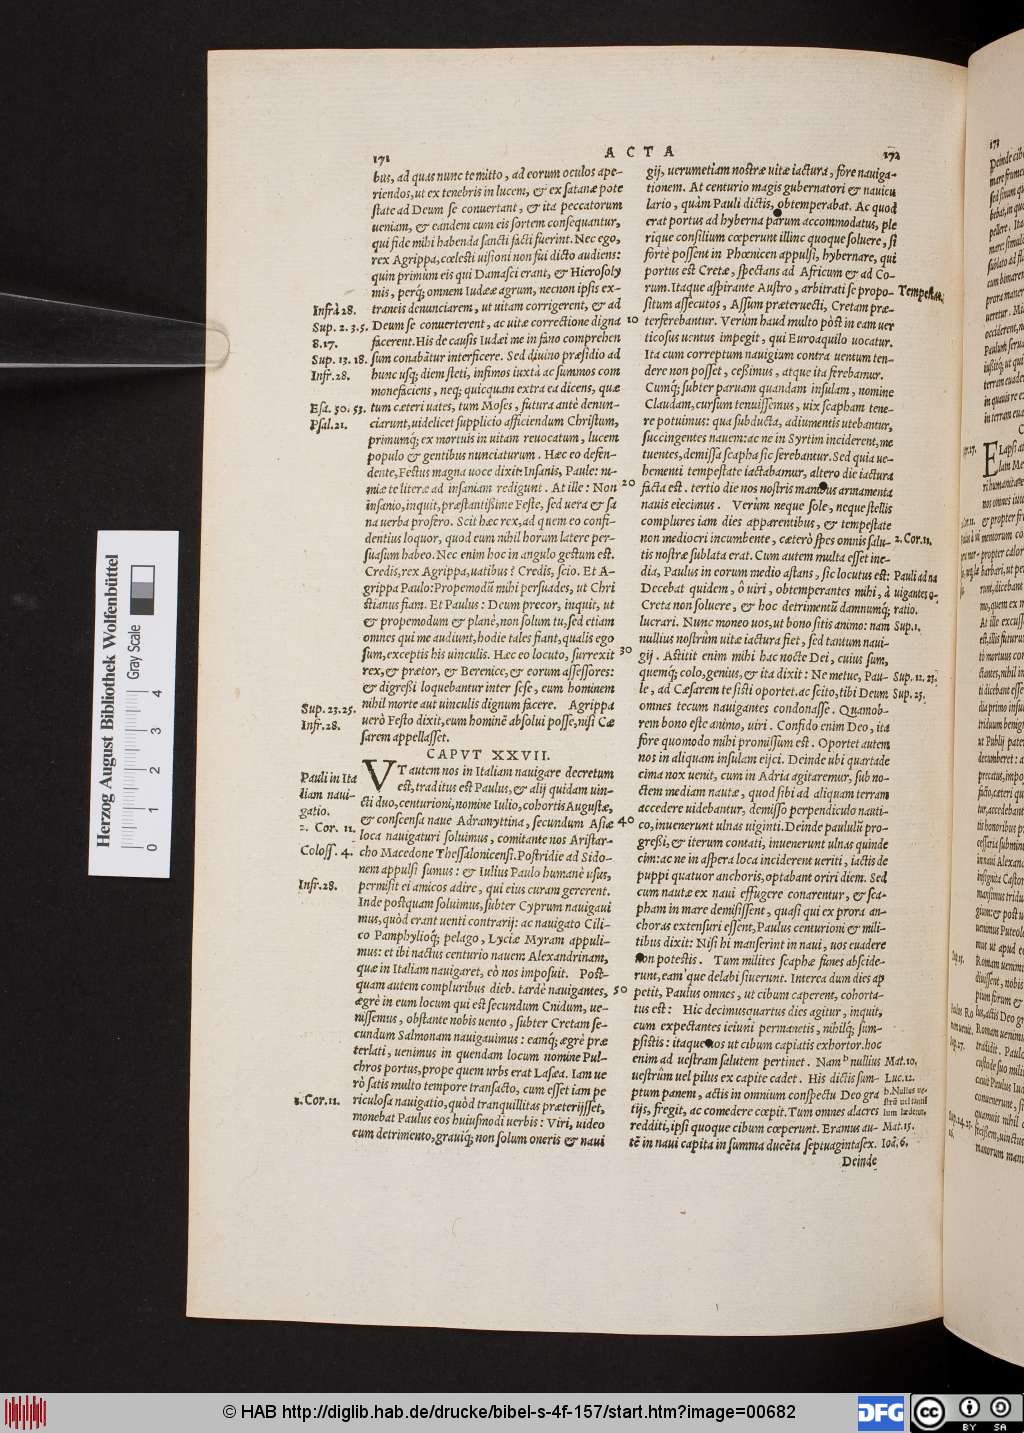 171
ACTA
172
bus, ad quas nunc te mitto, ad eorum oculos ape-
riendos, ut ex tenebris in lucem, & ex satanæ pote
state ad Deum se conuertant, & ita peccatorum
ueniam, & eandem cum eis sortem consequantur,
qui fide mihi habenda sancti facti fuerint. Nec ego,
rex Agrippa, cœlesti uisioni non fui dicto audiens:
quin primùm eis qui Damasci erant, & Hierosoly
mis, perq́; omnem Iudææ agrum, necnon ipsis ex-
traneis denunciarem, ut uitam corrigerent, & ad
Deum se conuerterent, ac uitæ correctione digna
facerent. His de causis Iudæi me in fano comprehen
sum conabãtur interficere. Sed diuino præsidio ad
hunc usq́; diem steti, infimos iuxtà ac summos com
monefaciens, neq; quicquam extra ea dicens, quæ
tum cæteri uates, tum Moses, futura antè denun-
ciarunt, uidelicet supplicio afficiendum Christum,
primumq́; ex mortuis in uitam reuocatum, lucem
populo & gentibus nunciaturum. Hæc eo defen-
dente, Festus magna uoce dixit: Insanis, Paule: ni-
miæ te literæ ad insaniam redigunt. At ille: Non
insanio, inquit, præstantißime Feste, sed uera & sa
na uerba profero. Scit hæc rex, ad quem eo confi-
dentius loquor, quod eum nihil horum latere per-
suasum habeo. Nec enim hoc in angulo gestum est.
Credis, rex Agrippa, uatibus? Credis, scio. Et A-
grippa Paulo: Propemodũ mihi persuades, ut Chri
stianus fiam. Et Paulus: Deum precor, inquit, ut
& propemodum & planè, non solum tu, sed etiam
omnes qui me audiunt, hodie tales fiant, qualis ego
sum, exceptis his uinculis. Hæc eo locuto, surrexit
rex, & prætor, & Berenice, & eorum assessores:
& digreßi loquebantur inter sese, eum hominem
nihil morte aut uinculis dignum facere. Agrippa
uerò Festo dixit, eum hominẽ absolui posse, nisi Cæ
sarem appellasset.
CAPVT XXVII.
VT autem nos in Italiam nauigare decretum
est, traditus est Paulus, & alij quidam uin-
cti duo, centurioni, nomine Iulio, cohortis Augustæ,
& conscensa naue Adramyttina, secundum Asiæ
loca nauigaturi soluimus, comitante nos Aristar-
cho Macedone Thessalonicensi. Postridie ad Sido-
nem appulsi sumus: & Iulius Paulo humanè usus,
permisit ei amicos adire, qui eius curam gererent.
Inde postquam soluimus, subter Cyprum nauigaui
mus, quòd erant uenti contrarij: ac nauigato Cili-
co Pamphylioq́; pelago, Lyciæ Myram appuli-
mus: et ibi nactus centurio nauem Alexandrinam,
quæ in Italiam nauigaret, eò nos imposuit. Post-
quam autem compluribus dieb. tardè nauigantes,
ægrè in eum locum qui est secundum Cnidum, ue-
nissemus, obstante nobis uento, subter Cretam se-
cundum Salmonam nauigauimus: eamq́; ægrè præ
terlati, uenimus in quendam locum nomine Pul-
chros portus, prope quem urbs erat Lasæa. Iam ue
rò satis multo tempore transacto, cum esset iam pe
riculosa nauigatio, quòd tranquillitas præterijsset,
monebat Paulus eos huiusmodi uerbis: Viri, uideo
cum detrimento, grauiq́; non solum oneris & naui
Infrà 28.
Sup. 2. 3. 5.
8. 17.
Sup. 13. 18.
Infr. 28.
Esa. 50. 53.
Psal. 21.
Sup. 23. 25.
Infr. 28.
Pauli in Ita
liam naui-
gatio.
2. Cor. 11.
Coloss. 4.
Infr. 28.
2. Cor. 11.
10
20
30
40
50
gij, uerumetiam nostræ uitæ iactura, fore nauiga-
tionem. At centurio magis gubernatori & nauicu
lario, quàm Pauli dictis, obtemperabat. Ac quod
erat portus ad hyberna parum accommodatus, ple
rique consilium cœperunt illinc quoque soluere, si
fortè possent in Phœnicen appulsi, hybernare, qui
portus est Cretæ, spectans ad Africum & ad Co-
rum. Itaque aspirante Austro, arbitrati se propo-
situm assecutos, Assum præteruecti, Cretam præ-
terferebantur. Verùm haud multo pòst in eam uer
ticosus uentus impegit, qui Euroaquilo uocatur.
Ita cum correptum nauigium contra uentum ten-
dere non posset, ceßimus, atque ita ferebamur.
Cumq́; subter paruam quandam insulam, nomine
Claudam, cursum tenuissemus, uix scapham tene-
re potuimus: qua subducta, adiumentis utebantur,
succingentes nauem: ac ne in Syrtim inciderent, me
tuentes, demissa scapha sic ferebantur. Sed quia ue-
hementi tempestate iactabamur, altero die iactura
facta est. tertio die nos nostris manibus armamenta
nauis eiecimus. Verùm neque sole, neque stellis
complures iam dies apparentibus, & tempestate
non mediocri incumbente, cæterò spes omnis salu-
tis nostræ sublata erat. Cum autem multa esset ine-
dia, Paulus in eorum medio astans, sic locutus est:
Decebat quidem, ô uiri, obtemperantes mihi, à
Creta non soluere, & hoc detrimentũ damnumq́;
lucrari. Nunc moneo uos, ut bono sitis animo: nam
nullius nostrûm uitæ iactura fiet, sed tantum naui-
gij. Astitit enim mihi hac nocte Dei, cuius sum,
quemq́; colo, genius, & ita dixit: Ne metue, Pau-
le, ad Cæsarem te sisti oportet. ac scito, tibi Deum
omnes tecum nauigantes condonasse. Quamob-
rem bono este animo, uiri. Confido enim Deo, ita
fore quomodo mihi promissum est. Oportet autem
nos in aliquam insulam eijci. Deinde ubi quarta de
cima nox uenit, cum in Adria agitaremur, sub no-
ctem mediam nautæ, quod sibi ad aliquam terram
accedere uidebantur, demisso perpendiculo nauti-
co, inuenerunt ulnas uiginti. Deinde paululũ pro-
greßi, & iterum contati, inuenerunt ulnas quinde
cim: ac ne in aspera loca inciderent ueriti, iactis de
puppi quatuor anchoris, optabant oriri diem. Sed
cum nautæ ex naui effugere conarentur, & sca-
pham in mare demisissent, quasi qui ex prora an-
choras extensuri essent, Paulus centurioni & mili-
tibus dixit: Nisi hi manserint in naui, uos euadere
non potestis. Tum milites scaphæ funes abscide-
runt, eam que delabi siuerunt. Interea dum dies ap
petit, Paulus omnes, ut cibum caperent, cohorta-
tus est: Hic decimusquartus dies agitur, inquit,
cum expectantes ieiuni permanetis, nihilq́; sum-
psistis: itaque uos ut cibum capiatis exhortor. hoc
enim ad uestram salutem pertinet. Nam b nullius
uestrûm uel pilus ex capite cadet. His dictis sum-
ptum panem, actis in omnium conspectu Deo gra
tijs, fregit, ac comedere cœpit. Tum omnes alacres
redditi, ipsi quoque cibum cœperunt. Eramus au-
tẽ in naui capita in summa ducẽta septuagintasex.
Deinde
Tempestas.
2. Cor. 11.
Pauli ad na
uigantes o-
ratio.
Sup. 1.
Sup. 12. 23.
Sup. 25.
Mat. 10.
Luc. 12.
b. Nullus ue-
strû uel tantil
lum lædetur.
Mat. 15.
Ioã. 6.
173
Herzog August Bibliothek Wolfenbüttel
Gray Scale
0 1 2 3 4
© HAB http://diglib.hab.de/drucke/bibel-s-4f-157/start.htm?image=00682
DFG
cc
BY SA